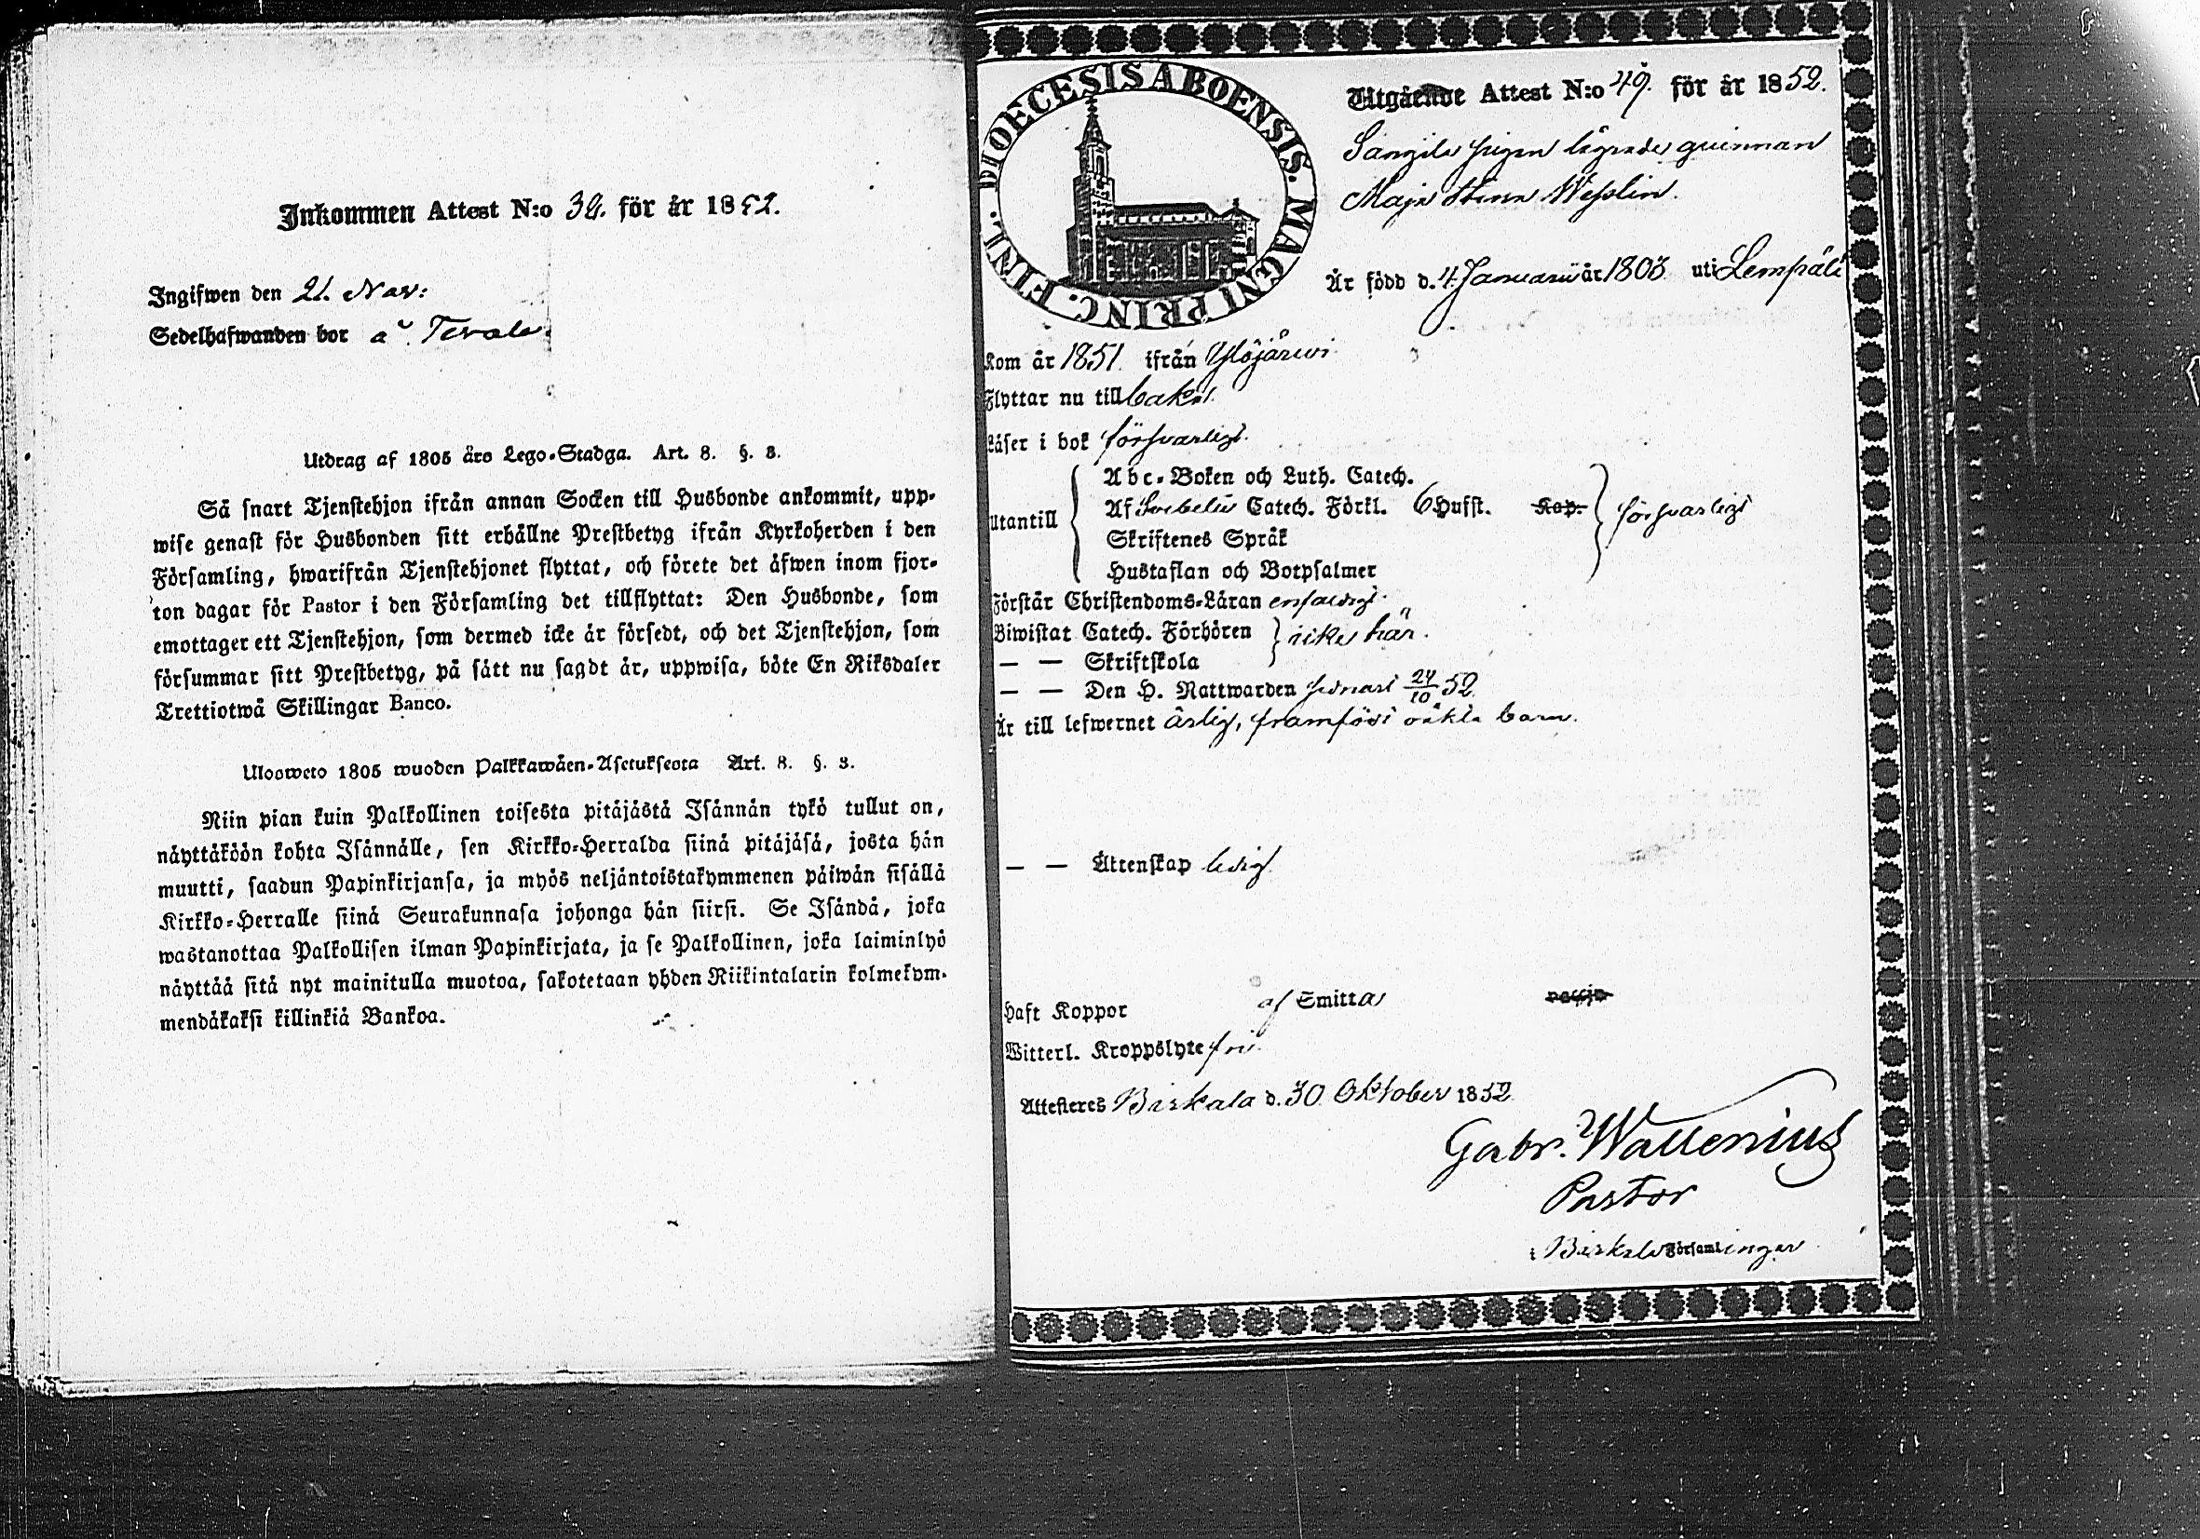 Inkommen Attest N:o 39. för år 1852.
Ingifwen den 21. Nov:
Sedelhafwanden bor å Terale.
Utdrag af 1805 års Lego-Stadga. Art. 8. §. 3.
Så snart Tjenstehjon ifrån annan Socken till Husbonde ankommit, upp-
wise genast för Husbonden sitt erhållne Prestbetyg ifrån Kyrkoherden i den
Församling, hwarifrån Tjenstehjonet flyttat, och förete det äfwen inom fjor-
ton dagar för Pastor i den Församling det tillflyttat: Den Husbonde, som
emottager ett Tjenstehjon, som dermed icke är försedt, och det Tjenstehjon, som
försummar sitt Prestbetyg, på sätt nu sagdt är, uppwisa, böte En Riksdaler
Trettiotwå Skillingar Banco.
Ulosweto 1805 wuoden Palkkawäen-Asetuksesta Art. 8. §. 3.
Niin pian kuin Palkollinen toisesta pitäjästä Isännän tykö tullut on,
näyttäköön kohta Isännälle, sen Kirkko-Herralda siinä pitäjäsä, josta hän
muutti, saadun Papinkirjansa, ja myös neljäntoistakymmenen päiwän sisällä
Kirkko-Herralle siinä Seurakunnasa johonga hän siirsi. Se Isändä, joka
wastanottaa Palkollisen ilman Papinkirjata, ja se Palkollinen, joka laiminlyö
näyttää sitä nyt mainitulla muotoa, sakotetaan yhden Riikintalarin kolmekym-
mendäkaksi killinkiä Bankoa.
DIOECESIS ABOENSIS. MAGNI PRINC. FINL.
Utgående Attest N:o 49. för år 1852.
pigan lägrade qvinnan
Maja Stina Wesslin.
Är född d. 4 Januarii år 1803 uti Lempälä
Kom år 1851. ifrån Ylöjärwi
Flyttar nu tillbaka.
Läser i bok försvarligt.
Utantill
Abc-Boken och Luth. Catech.
Af Svebelii Catech. Förkl. 6 Hufst. Kap. försvarligt
Skriftenes Språk
Hustaflan och Botpsalmer
Förstår Christendoms-Läran enfaldigt.
Biwistat Catech. Förhören icke här.
— — Skriftskola
— — Den H. Nattwarden sednast 24/10 52
Är till lefwernet ärlig, framfödt oäkta barn.
— — Ächtenskap ledig
Haft Koppor af Smitta
Witterl. Kroppslyte fri.
Attesteres Birkala d. 30 Oktober 1852
Gabr. Wallenius
Pastor
i Birkala Församlingar